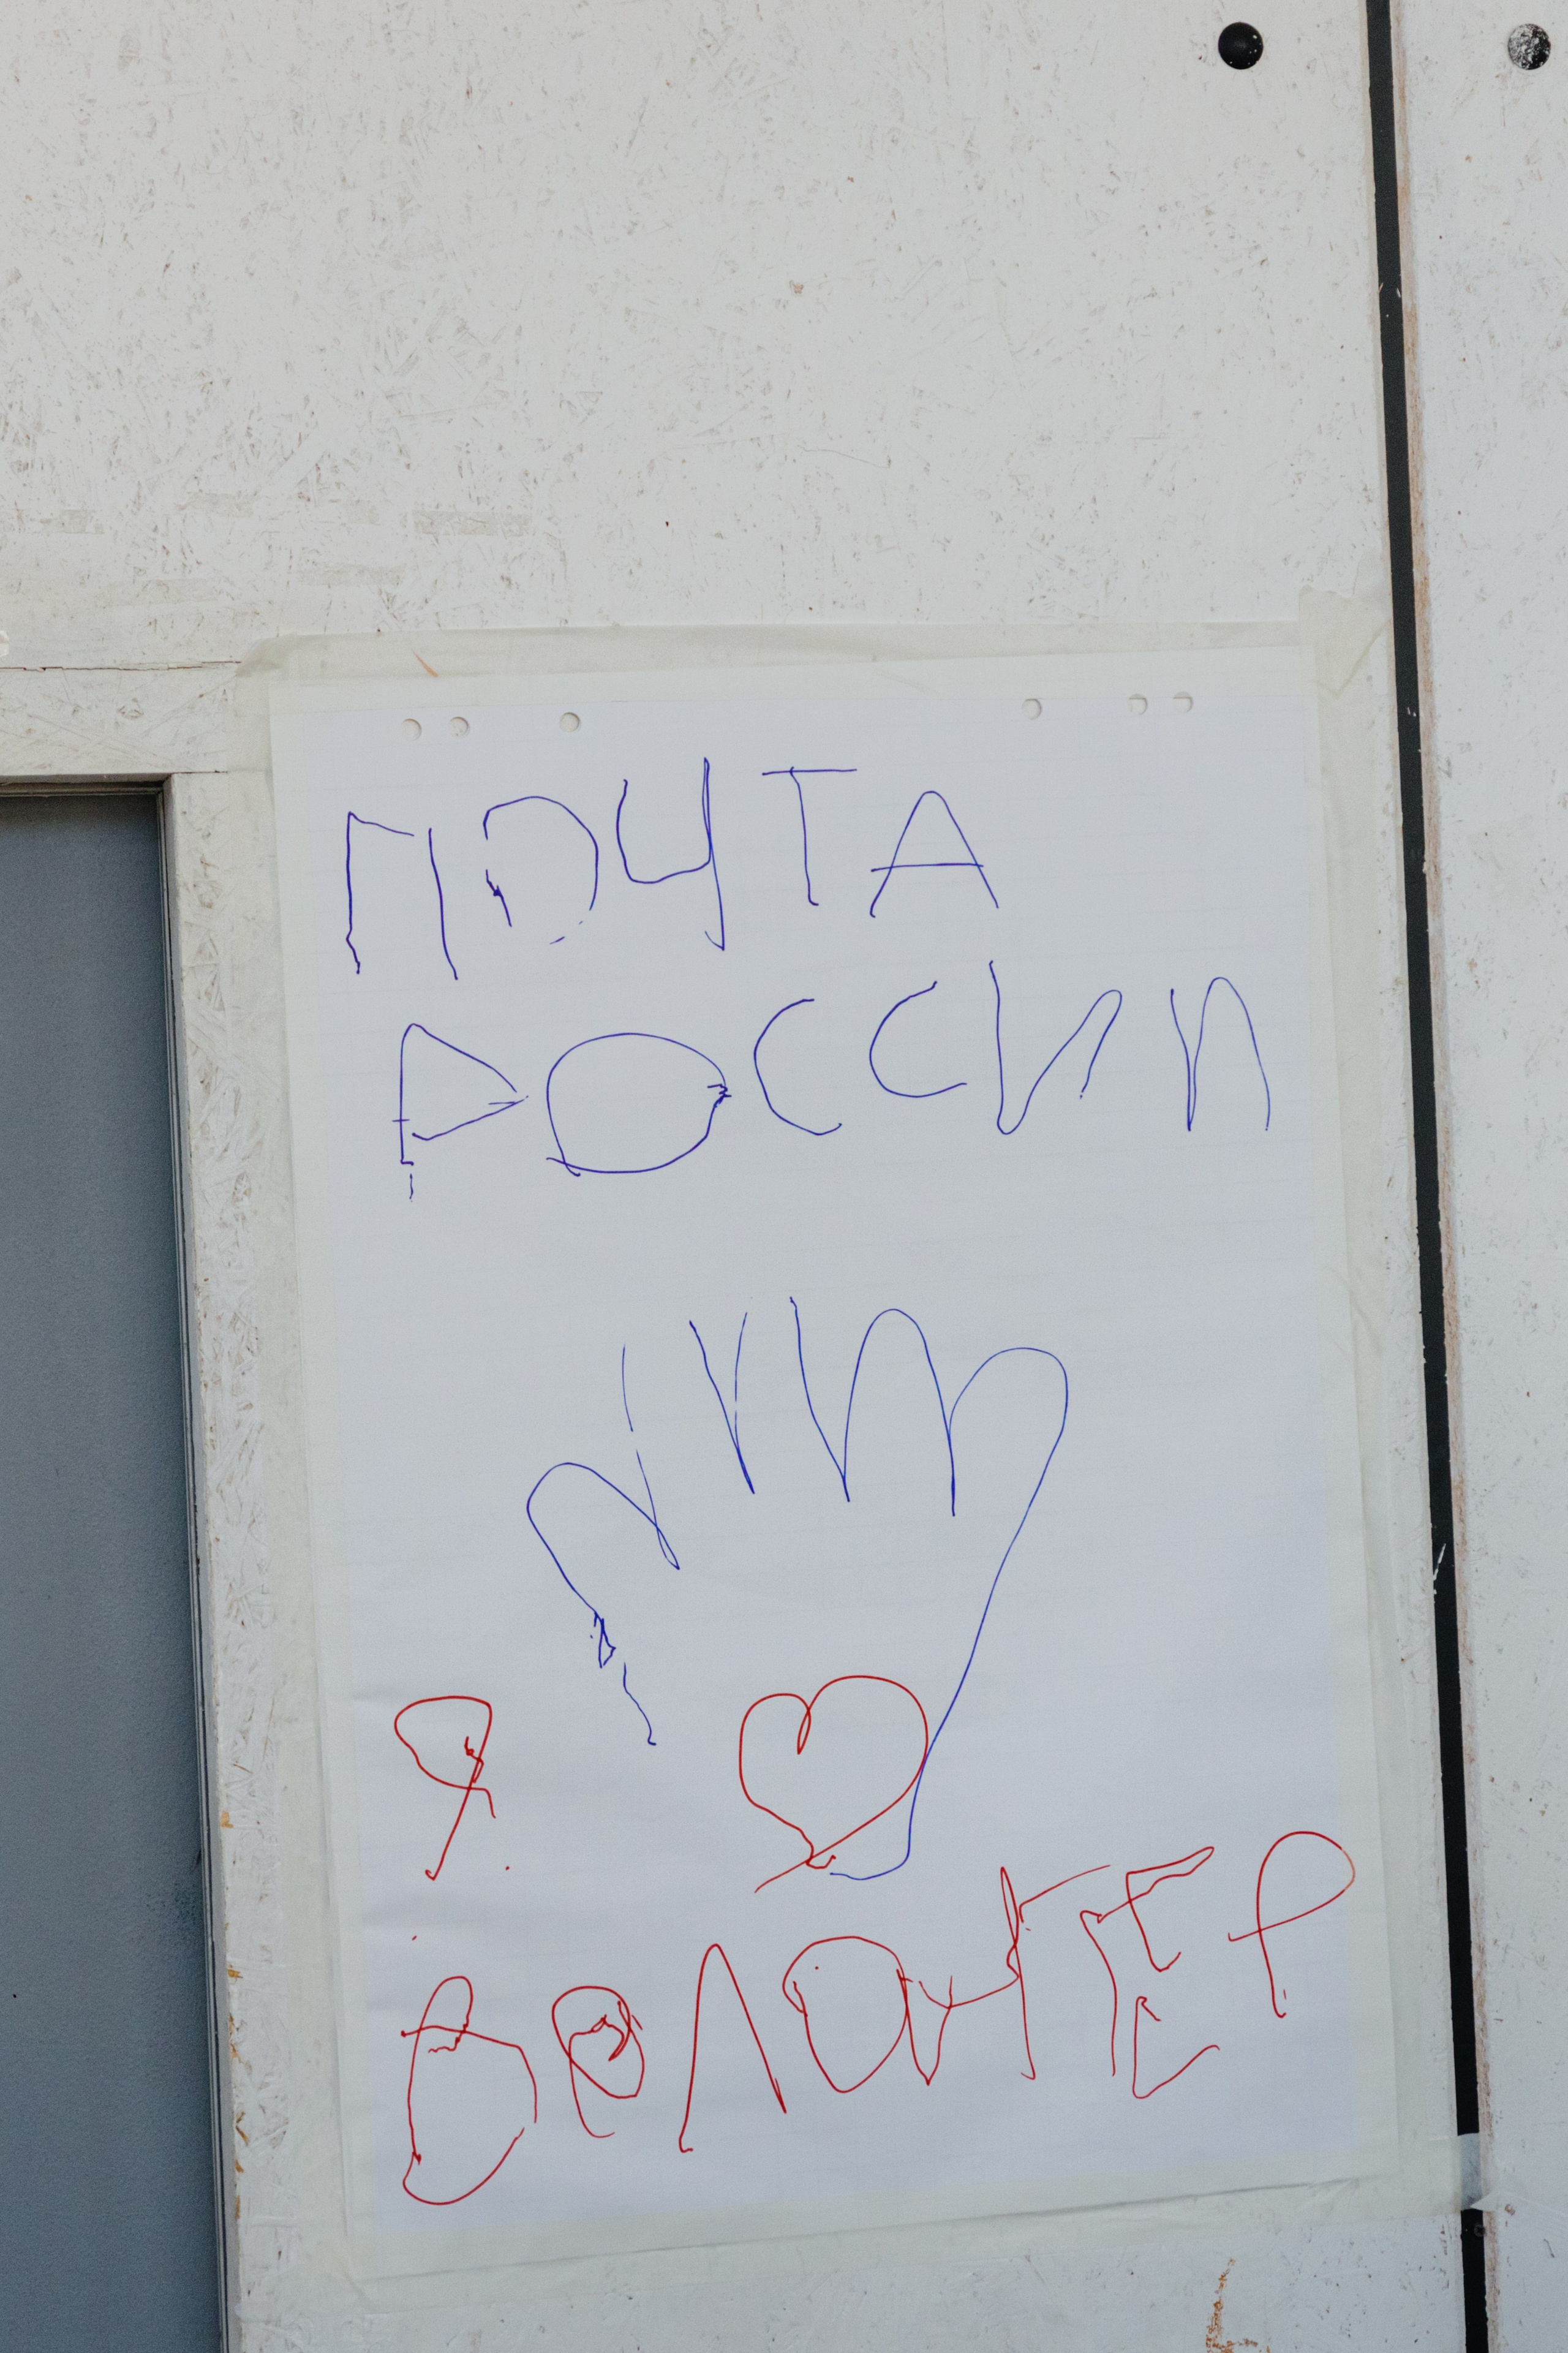 ПОЧТА
РОССИИ
Я
ВОЛОНТЕР